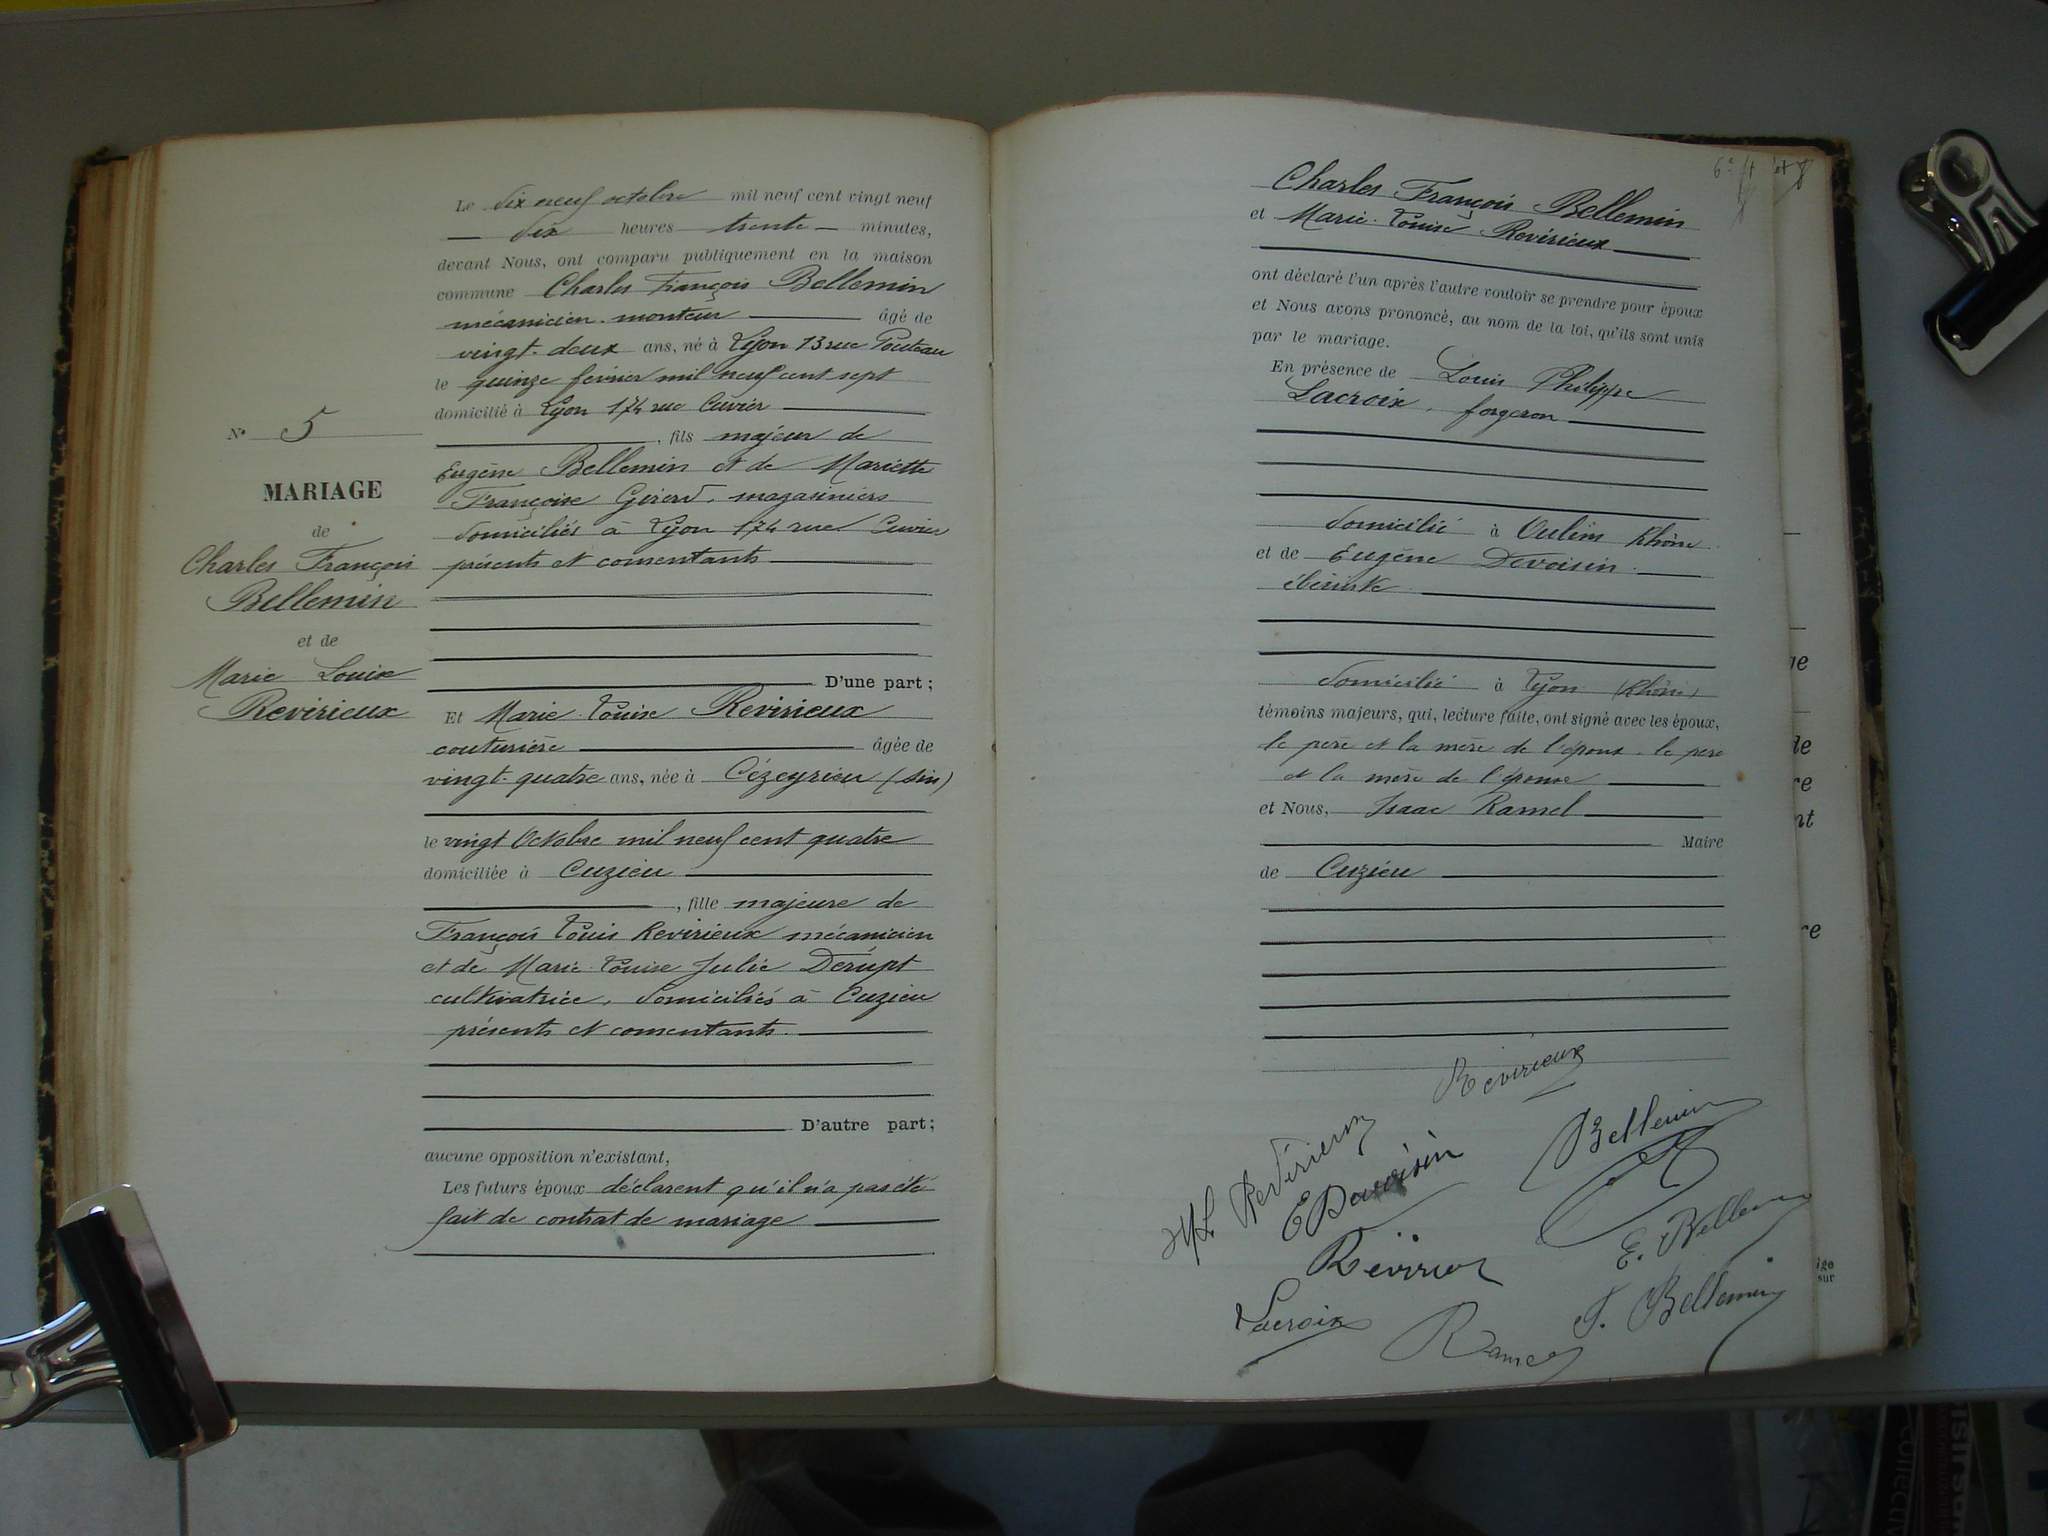 N° 5
MARIAGE
de
Charles François
Bellemin
et de
Marie Louise
Revirieux
Le dix neuf octobre mil neuf cent vingt neuf
dix heures trente minutes,
devant Nous, ont comparu publiquement en la maison
commune Charles François Bellemin
mécanicien-monteur âgé de
vingt-deux ans, né à Lyon 13 rue Pouteau
le quinze février mil neuf cent sept
domicilié à Lyon 174 rue Cuvier
, fils majeur de
Eugène Bellemin et de Mariette
Françoise Girerd, magasiniers
domiciliés à Lyon 174 rue Cuvier
présents et consentants
D'une part ;
Et Marie-Louise Revirieux
couturière âgée de
vingt-quatre ans, née à Cézeyrieu (Ain)
le vingt Octobre mil neuf cent quatre
domiciliée à Cuzieu
, fille majeure de
François Louis Revirieux mécanicien
et de Marie-Louise Julie Dérupt
cultivatrice, domiciliés à Cuzieu
présents et consentants.
D'autre part ;
aucune opposition n'existant,
Les futurs époux déclarent qu'il n'a pas été
fait de contrat de mariage
6e
Charles François Bellemin
et Marie-Louise Revirieux
ont déclaré l'un après l'autre vouloir se prendre pour époux
et Nous avons prononcé, au nom de la loi, qu'ils sont unis
par le mariage.
En présence de Louis Philippe
Lacroix, forgeron
domicilié à Oulins Rhône
et de Eugène Devoisin
ébéniste
domicilié à Lyon (Rhône)
témoins majeurs, qui, lecture faite, ont signé avec les époux,
le père et la mère de l'époux, le père
et la mère de l'épouse
et Nous, Isaac Ramel
Maire
de Cuzieu
Revirieux
Bellemin
ML Revirieux
E Devoisin
E. Bellemin
Lacroix
F. Bellemin
Ramel